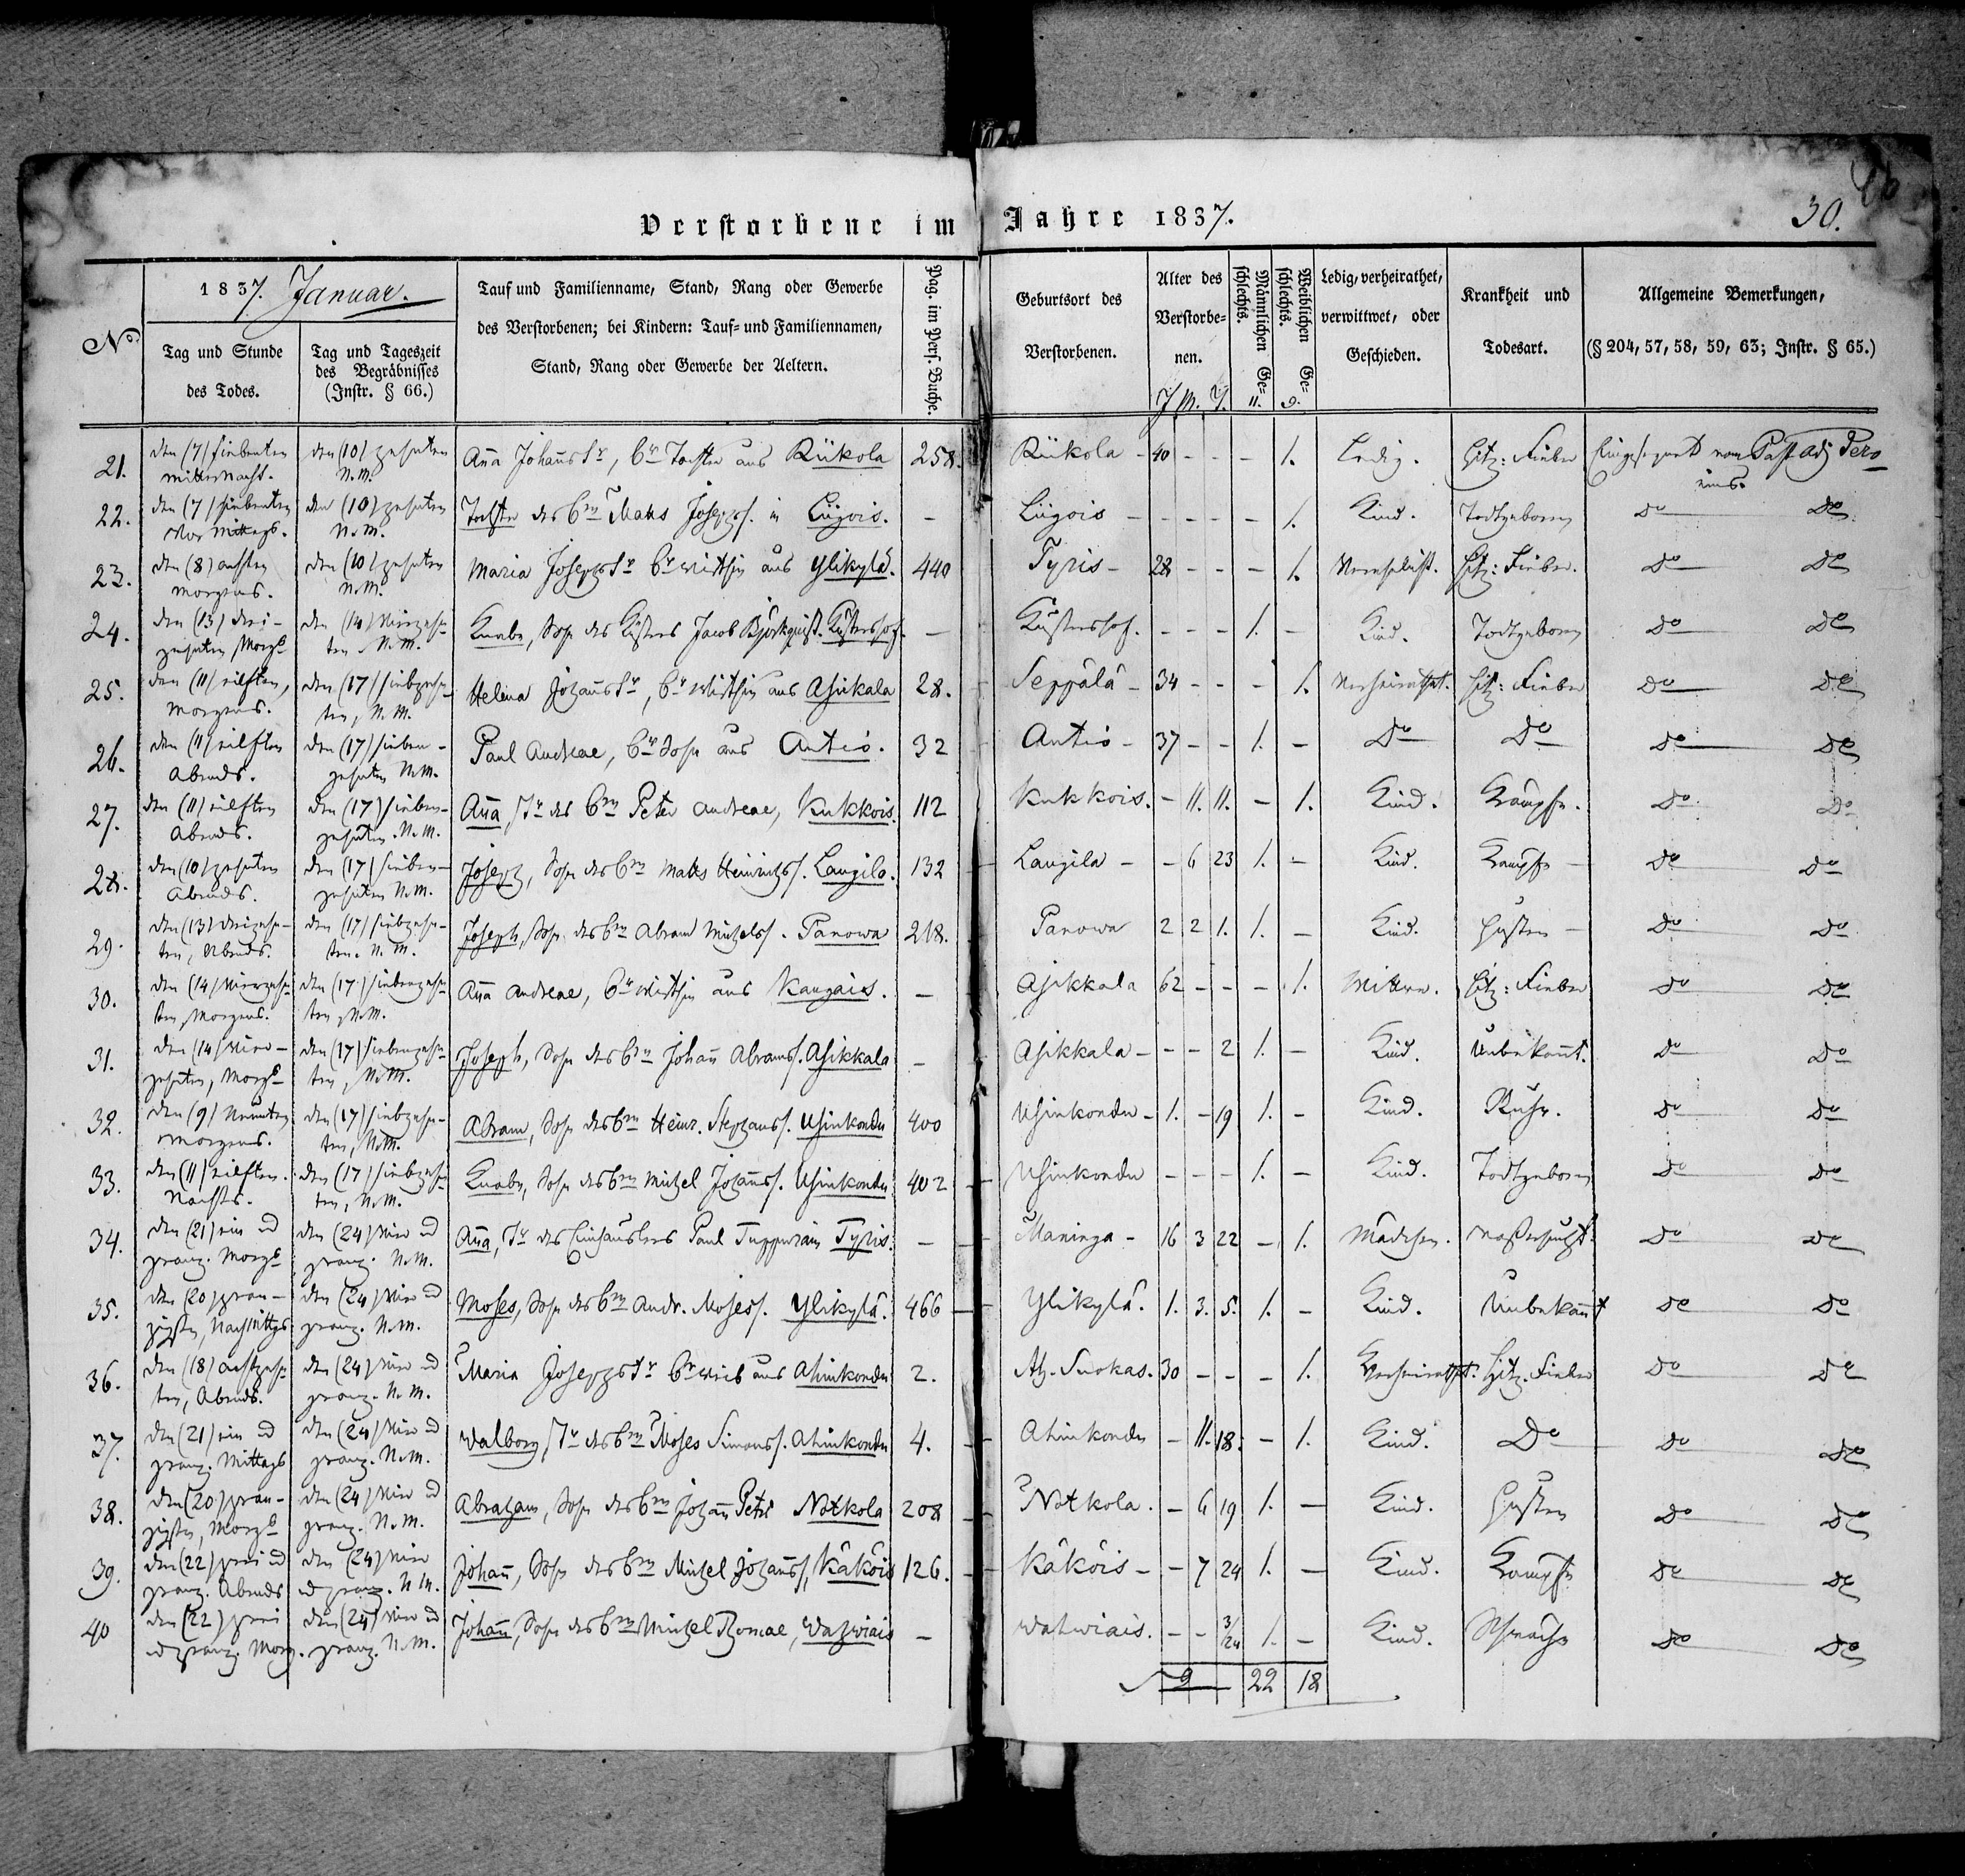 Verstorbene im Jahre 1837.
30.
No
1837. Januar.
Tag und Stunde des Todes.
Tag und Tageszeit des Begräbnisses (Instr. § 66.)
Tauf und Familienname, Stand, Rang oder Gewerbe
des Verstorbenen; bei Kindern: Tauf- und Familiennamen,
Stand, Rang oder Gewerbe der Aeltern.
Pag. im Pers. Buche.
Geburtsort des Verstorbenen.
Alter des Verstorbenen.
J. M. T.
Männlichen Geschlechts. 11.
Weiblichen Geschlechts. 9.
Ledig, verheirathet, verwittwet, oder Geschieden.
Krankheit und Todesart.
Allgemeine Bemerkungen,
(§ 204, 57, 58, 59, 63; Instr. § 65.)
21. den (7) siebenten Mitternacht. den (10) zehnten N.M. Aña Johañs Tr, Brn Tochter aus Riikola 258. Riikola - 40 - - - 1. Ledig. Hitz: Fieber Eingesegnet vom Past. Adj.
22. den (7) siebenten Vormittags. den (10) zehnten N.M. Tochter des Brn Matts Josephs. in Liigois. - Liigois - - - - - 1. Kind. Todtgeboren do do
23. den (8) achten Morgens. den (10) zehnten N.M. Maria Josephs Tr Br Wirthin aus Ylikylä. 440 Tyris - 28 - - - 1. Hitz: Fieber. do do
24. den (13) dreizehnten Morgs den (14) vierzehnten N.M. Knabe, Sohn des Küsters Jacob Björkqvist. Küstershof. - Küstershof. - - - 1. - Kind. Todtgeboren do do
25. den (11) eilften, Morgens. den (17) siebzehnten, N.M. Helena Johañs Tr, Br Wirthin aus Asikkala 28. Seppälä - 34 - - - 1. Verheirathet. Hitz: Fieber do do
26. den (11) eilften Abends. den (17) siebenzehnten N.M. Paul Andreae, Br Sohn aus Antio. 32 Antio - 37 - - 1. - Do Do do do
27. den (11) eilften Abends. den (17) siebenzehnten. N.M. Aña Tr des Brn Peter Andreae, Kukkois. 112 Kukkois. - 11. 11. - 1. Kind. Krämpfe. do do
28. den (10) zehnten Abends. den (17) siebenzehnten N.M. Joseph, Sohn des Brn Matts Heinrichs. Laugila. 132 Laugila - - 6 23 1. - Kind. Krämpfe - do do
29. den (13) dreizehnten, Abends. den (17) siebzehnten. N.M. Joseph, Sohn des Brn Abram Michels. Panowa 218. Panowa 2 2 1. 1. - Kind. Husten - do do
30. den (14) vierzehnten, Morgens. den (17) siebenzehnten, N.M. Aña Andreae, Br Wirthin aus Kaugais. - Asikkala 62 - - - 1. Wittwe. Hitz: Fieber do do
31. den (14) vierzehnten, Morgs den (17) siebenzehnten, N.M. Joseph, Sohn des Brn Johañ Abrams. Asikkala - Asikkala - - - 2 1. - Kind. Unbekañt. do do
32. den (9) Neunten Morgens. den (17) siebzehnten, N.M. Abram, Sohn des Brn Heinr. Stephans. Uhinkondu 400 Uhinkondu - 1. - 19 1. - Kind. Ruhr. do do
33. den (11) eilften. Nachts. den (17) siebzehnten, N.M. Knabe, Sohn des Brn Michel Johañs. Uhinkondu 402 Uhinkondu - - - 1. - Kind. Todtgeboren do do
34. den (21) ein ud zwanz. Morgs den (24) vier ud zwanz. N.M. Aña, Tr des Einhäuslers Paul Tuppurain Tyris. - Maninga - 16 3 22 - 1. Mädchen. Waßersucht. do do
35. den (20) zwanzigsten, Nachmittags den (24) vier ud zwanz. N.M. Moses, Sohn des Brn Andr. Moses. Ylikylä. 466 Ylikylä. 1. 3. 5. 1. - Kind. Unbekañt do do
36. den (18) achtzehnten, Abends. den (24) vier ud zwanz. N.M. Maria Josephs Tr Br Weib aus Ahinkondu 2. Suokas. 30 - - - 1. Verheirathet. Hitz. Fieber do do
37. den (21) ein ud zwanz. Mittags den (24) vier ud zwanz. N.M. Walborg Tr des Brn Moses Simons. Ahinkondu 4. Ahinkondu - 11. 18. - 1. Kind. Do do do
38. den (20) zwanzigsten, Morgs den (24) vier ud zwanz. N.M. Abraham, Sohn des Brn Johañ Petri Notkola 208 Notkola. - 6 19 1. - Kind. Husten do do
39. den (22) zwei ud zwanz. Abends den (24) vier ud zwanz. N.M. Johañ, Sohn des Brn Michel Johañs, Käköis 126. Käköis - - 7 24 1. - Kind. Krämpfe do do
40 den (22) zwei ud zwanz. Morg. den (24) vier ud zwanz. N.M. Johañ, Sohn des Brn Michel Thomae, Wahwiais - Wahwiais. - - 3/24 1. - Kind. Schwäche do do
22 18